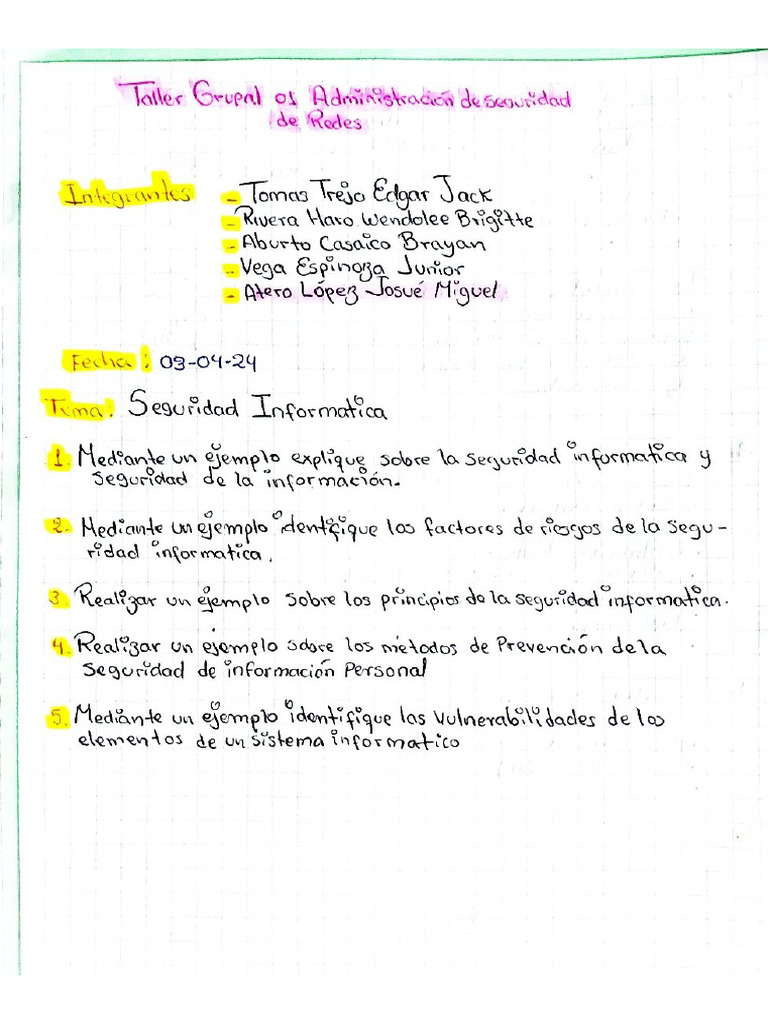 Taller Grupal 01 Administración de seguridad
de Redes
Integrantes - Tomas Trejo Edgar Jack
- Rivera Haro Wendolee Brigitte
- Aburto Casaico Brayan
- Vega Espinoza Junior
- Atero López Josué Miguel
Fecha: 03-04-24
Tema: Seguridad Informatica
1. Mediante un ejemplo explique sobre la seguridad informatica y
seguridad de la información.
2. Mediante un ejemplo identifique los factores de riesgos de la segu-
ridad informatica.
3. Realizar un ejemplo sobre los principios de la seguridad informatica.
4. Realizar un ejemplo sobre los métodos de Prevención de la
seguridad de información Personal
5. Mediante un ejemplo identifique las vulnerabilidades de los
elementos de un sistema informatico